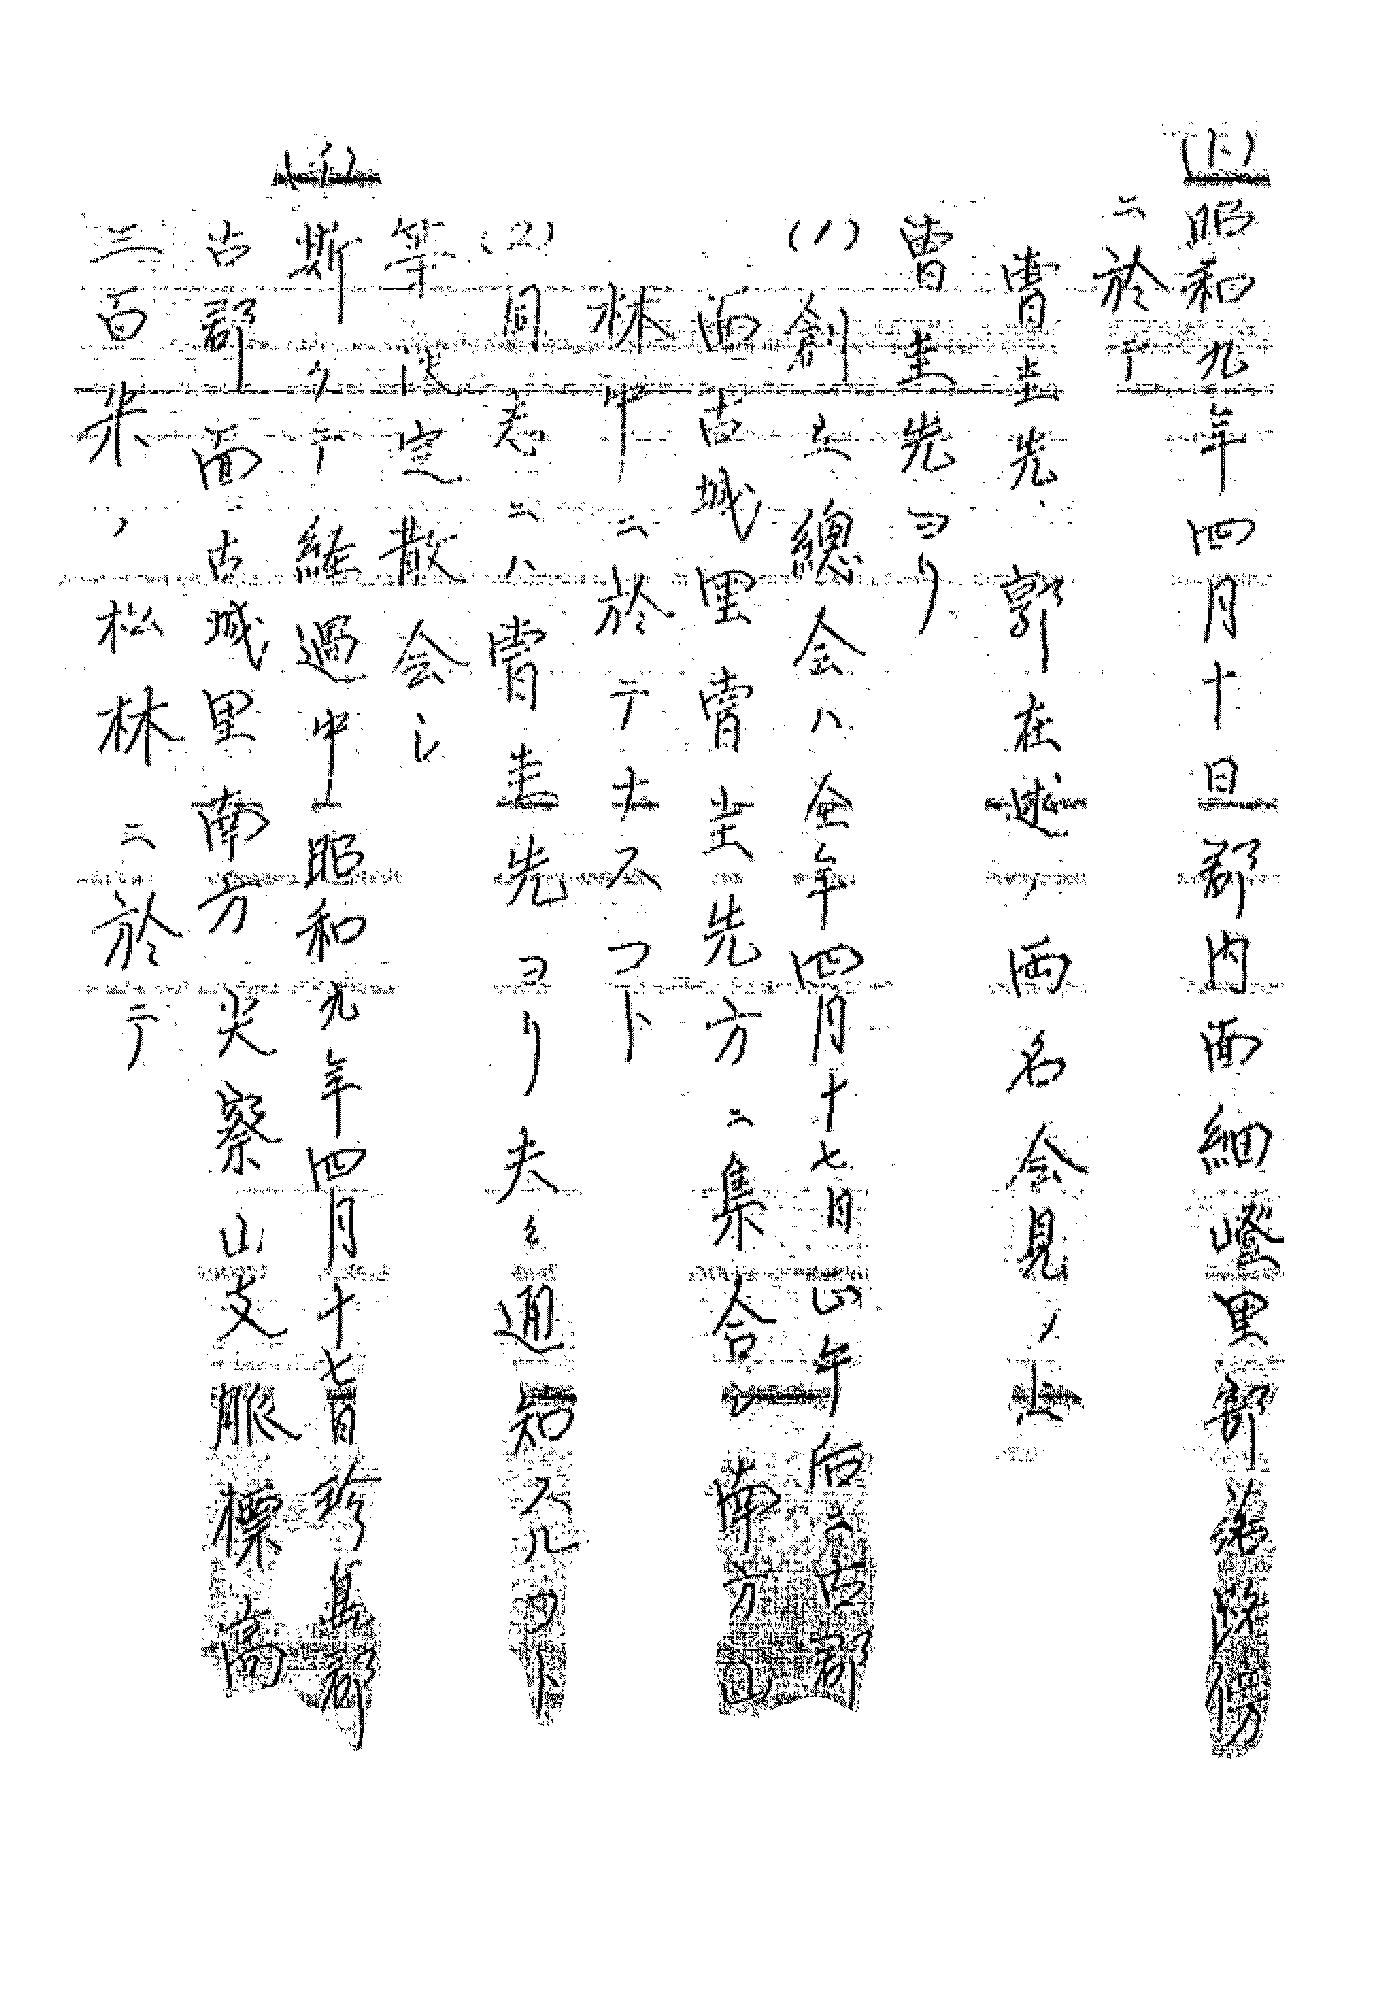 (ト)昭和九年四月十日郡内面細嶝里部落路傍
ニ於テ
曺圭先、郭在述ノ両名会見ノ上
曺圭先ヨリ
(1)創立総会ハ仝年四月十七日正午后ニ古郡
面古城里曺圭先方ニ集合シ南方山
林中ニ於テナスコト
(2)同志ニハ曺圭先ヨリ夫々通知スルコト
等決定散会シ
(チ)斯クテ経過中昭和九年四月十七日珍島郡
古郡面古城里南方尖察山支脈標高
三百米ノ松林ニ於テ